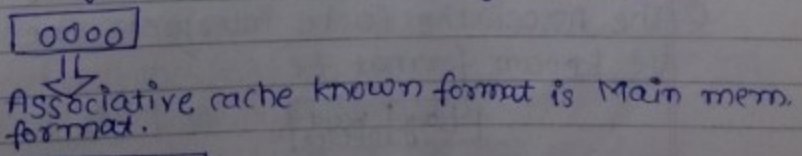 0000
Associative cache known format is Main mem.
format.